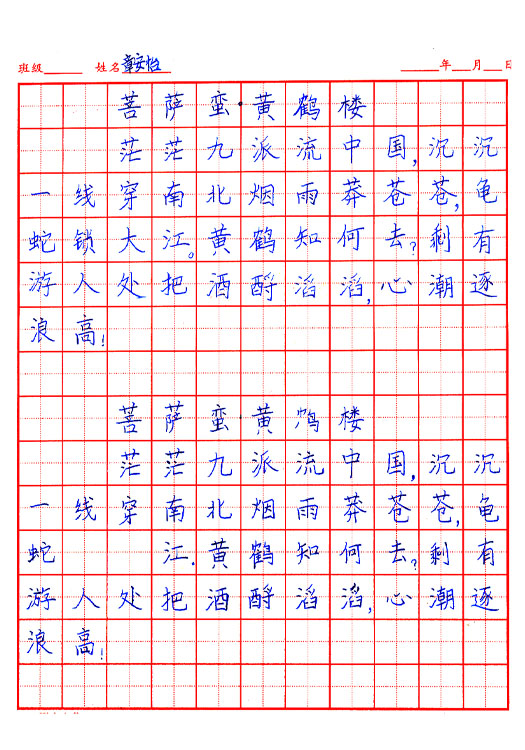 班级 姓名章安怡 年 月 日
菩萨蛮·黄鹤楼
茫茫九派流中国,沉沉
一线穿南北烟雨莽苍苍,龟
蛇锁大江。黄鹤知何去?剩有
游人处把酒酹滔滔,心潮逐
浪高!
菩萨蛮·黄鸩楼
茫茫九派流中国,沉沉
一线穿南北烟雨莽苍苍,龟
蛇 江.黄鹤知何去?剩有
游人处把酒酹滔滔,心潮逐
浪高!